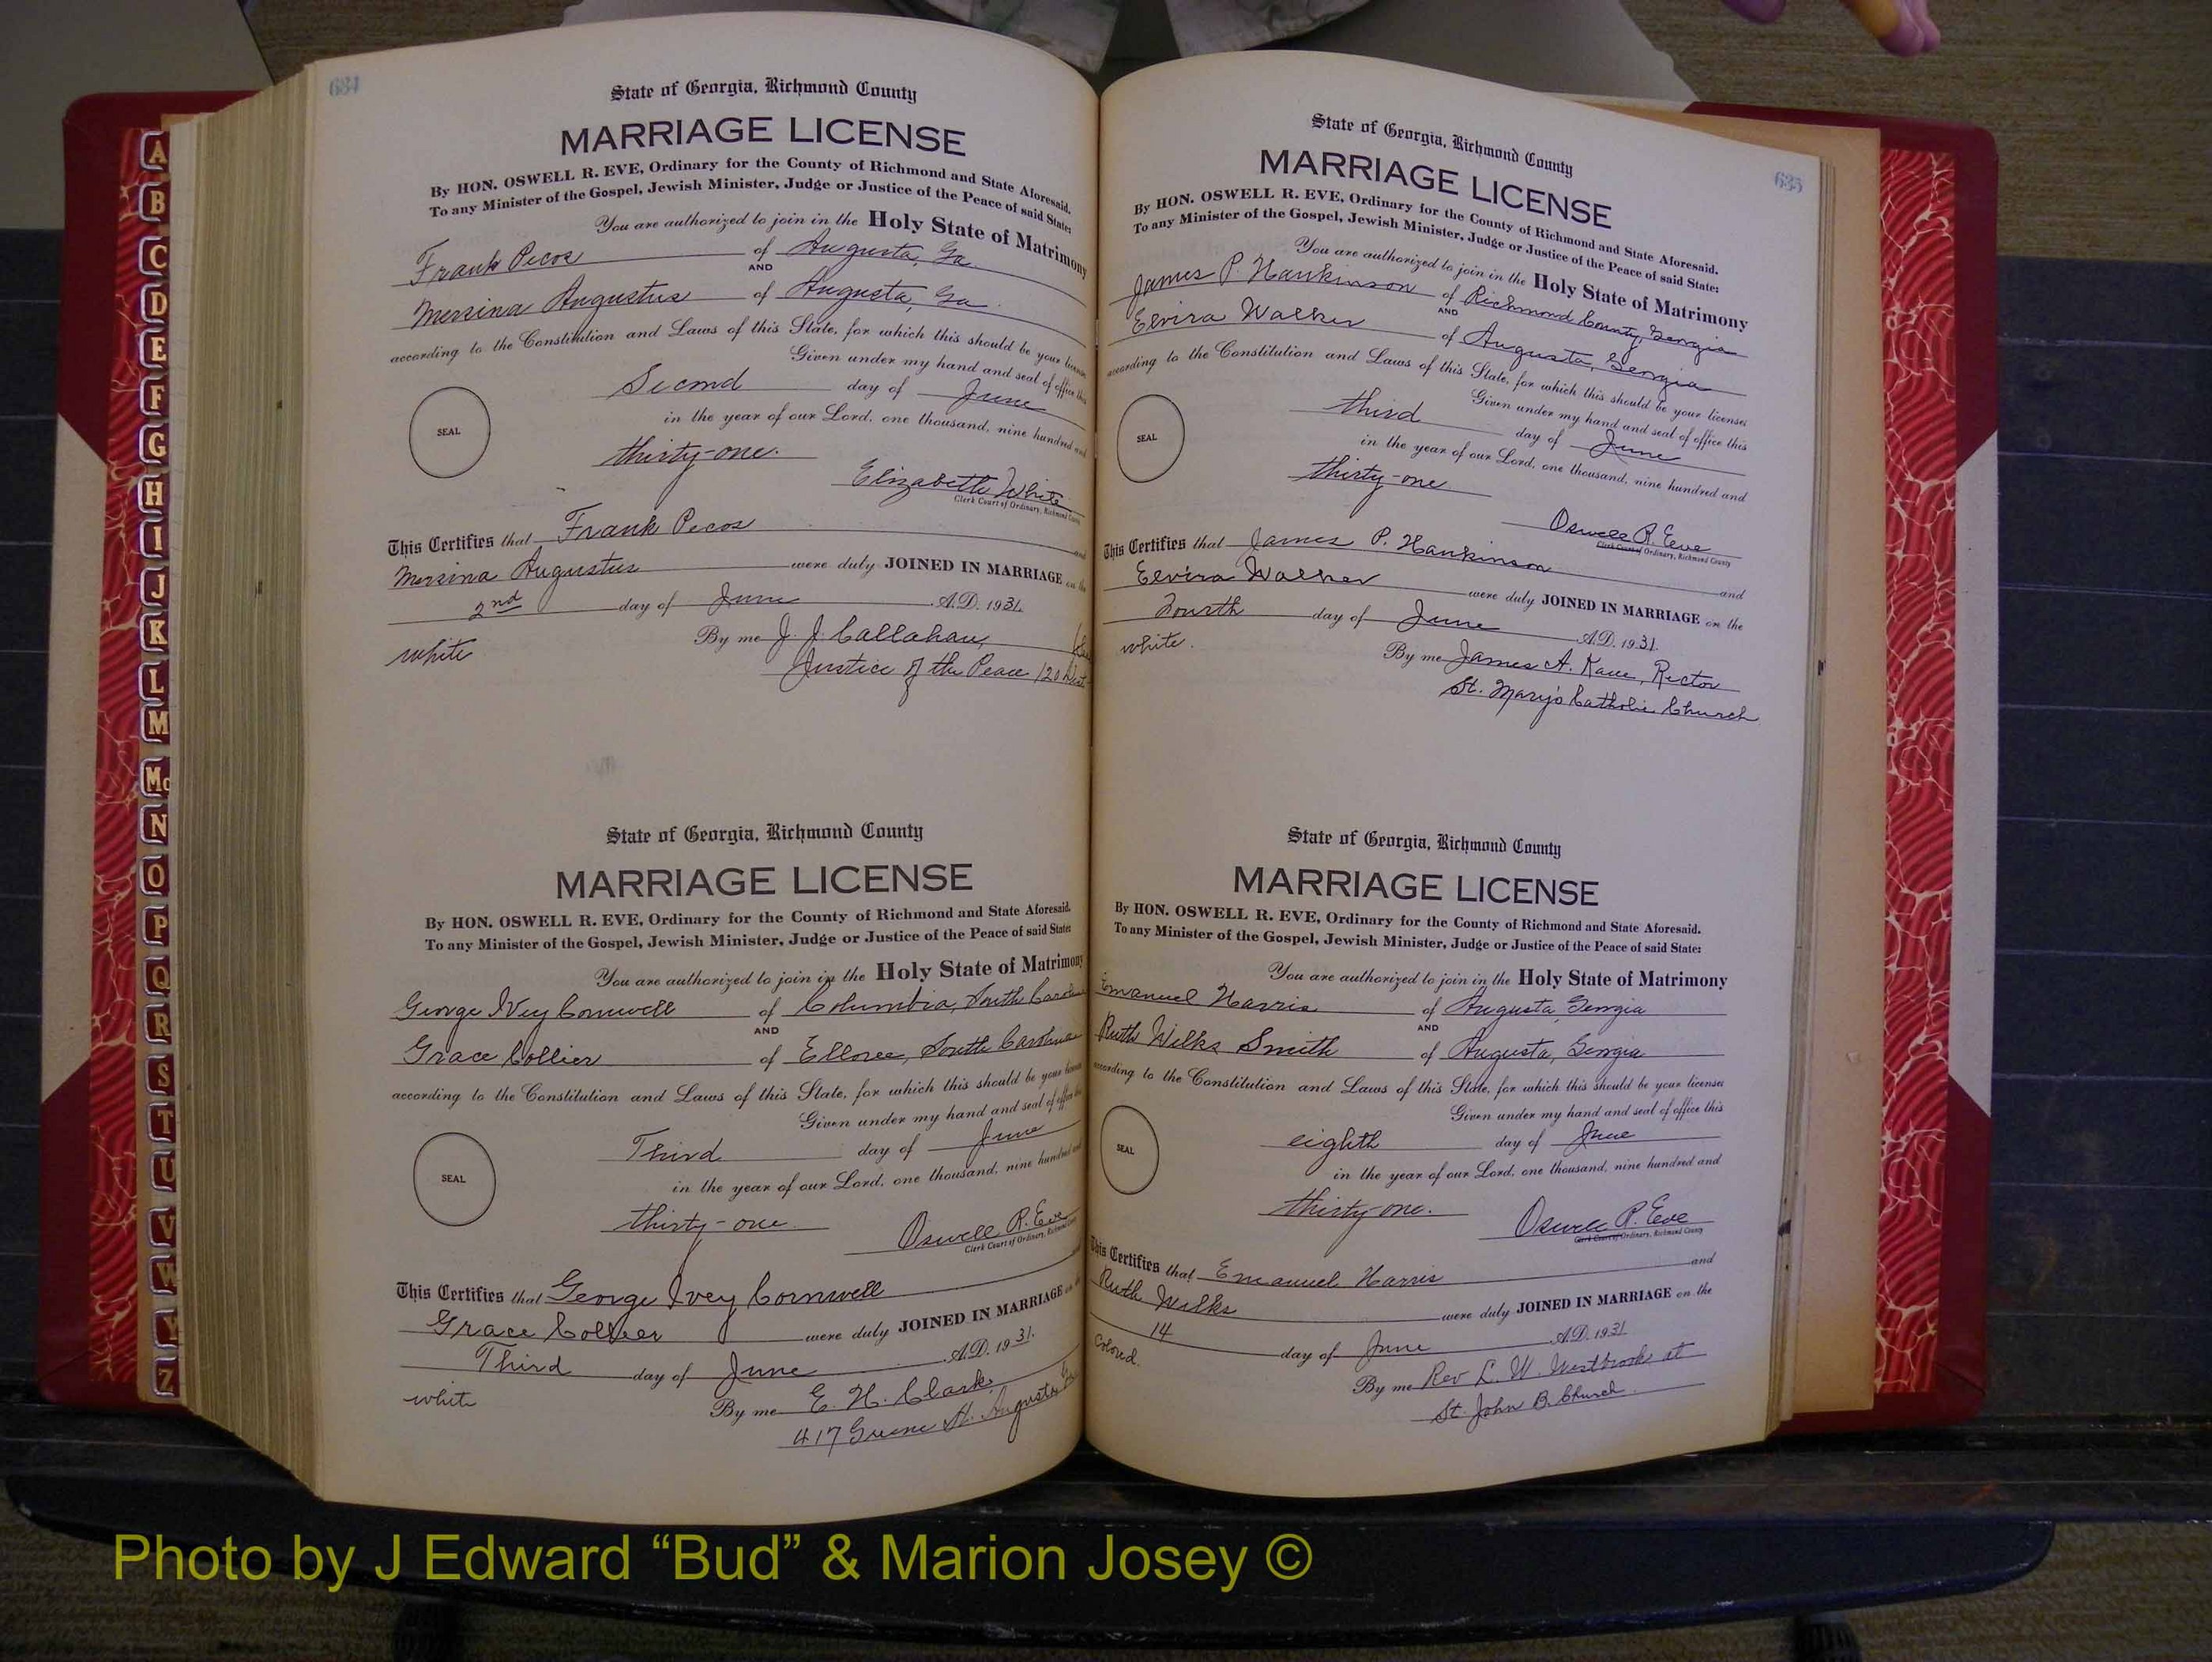 A
B
C
D
E
F
G
H
I
J
K
L
M
Mc
N
O
P
Q
R
S
T
U
V
W
Y
Z
634
State of Georgia, Richmond County
MARRIAGE LICENSE
By HON. OSWELL R. EVE, Ordinary for the County of Richmond and State Aforesaid.
To any Minister of the Gospel, Jewish Minister, Judge or Justice of the Peace of said State:
You are authorized to join in the Holy State of Matrimony
Frank Pecos of Augusta, Ga.
AND
Mersina Augustus of Augusta, Ga.
according to the Constitution and Laws of this State, for which this should be your license
Given under my hand and seal of office this
Second day of June
SEAL
in the year of our Lord, one thousand, nine hundred and
thirty-one.
Elizabeth White
Clerk Court of Ordinary, Richmond County
This Certifies that Frank Pecos and
Mersina Augustus were duly JOINED IN MARRIAGE on the
2nd day of June A.D. 1931.
white By me J. J. Callahan,
Justice of the Peace 120 Dist
State of Georgia, Richmond County
MARRIAGE LICENSE
By HON. OSWELL R. EVE, Ordinary for the County of Richmond and State Aforesaid.
To any Minister of the Gospel, Jewish Minister, Judge or Justice of the Peace of said State:
You are authorized to join in the Holy State of Matrimony
George Ivey Cornwell of Columbia, South Carolina
AND
Grace Collier of Elloree, South Carolina
according to the Constitution and Laws of this State, for which this should be your license
Given under my hand and seal of office this
Third day of June
SEAL
in the year of our Lord, one thousand, nine hundred and
thirty-one.
Oswell R. Eve
Clerk Court of Ordinary, Richmond
This Certifies that George Ivey Cornwell and
Grace Collier were duly JOINED IN MARRIAGE on the
Third day of June A.D. 1931.
white By me E. H. Clark.
417 Greene St. Augusta, Ga
635
State of Georgia, Richmond County
MARRIAGE LICENSE
By HON. OSWELL R. EVE, Ordinary for the County of Richmond and State Aforesaid.
To any Minister of the Gospel, Jewish Minister, Judge or Justice of the Peace of said State:
You are authorized to join in the Holy State of Matrimony
James P. Hankinson of Richmond County, Georgia
AND
Elvira Walker of Augusta, Georgia
according to the Constitution and Laws of this State, for which this should be your license
Given under my hand and seal of office this
third day of June
SEAL
in the year of our Lord, one thousand, nine hundred and
thirty-one
Oswell R. Eve
Clerk Court of Ordinary, Richmond County
This Certifies that James P. Hankinson and
Elvira Walker were duly JOINED IN MARRIAGE on the
Fourth day of June A.D. 1931.
white. By me James A. Kane, Rector
St. Mary's Catholic Church
State of Georgia, Richmond County
MARRIAGE LICENSE
By HON. OSWELL R. EVE, Ordinary for the County of Richmond and State Aforesaid.
To any Minister of the Gospel, Jewish Minister, Judge or Justice of the Peace of said State:
You are authorized to join in the Holy State of Matrimony
Emanuel Harris of Augusta, Georgia
AND
Ruth Wilks Smith of Augusta, Georgia
according to the Constitution and Laws of this State, for which this should be your license
Given under my hand and seal of office this
eighth day of June
SEAL
in the year of our Lord, one thousand, nine hundred and
thirty one.
Oswell R. Eve
Clerk Court of Ordinary, Richmond County
This Certifies that Emanuel Harris and
Ruth Wilks were duly JOINED IN MARRIAGE on the
14 day of June A.D. 1931
Colored. By me Rev L. W. Westbrook at
St. John B. Church.
Photo by J Edward “Bud” & Marion Josey ©